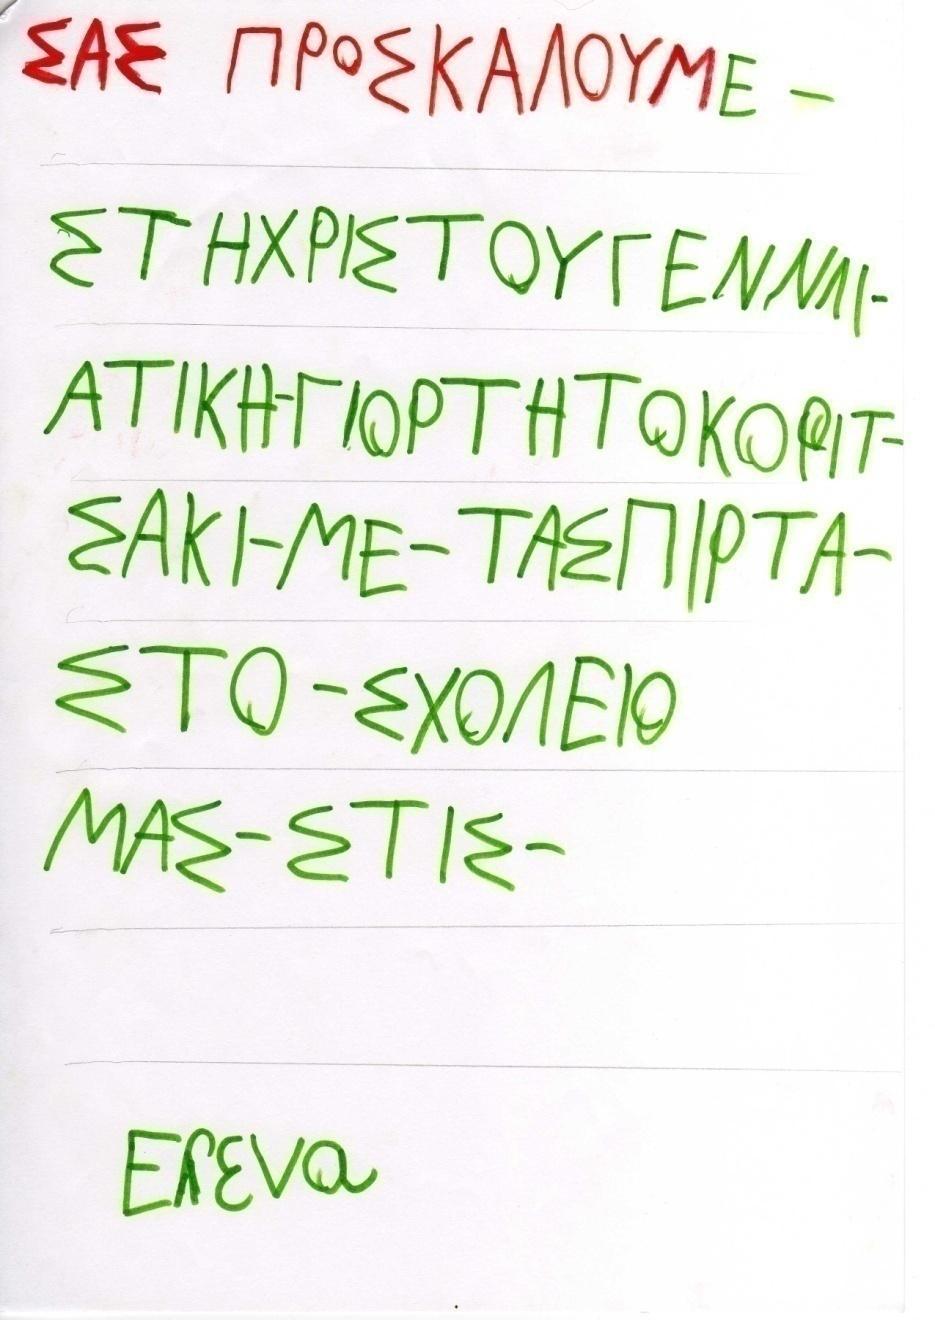 ΣΑΣ ΠΡΟΣΚΑΛΟΥΜΕ -
ΣΤΗΧΡΙΣΤΟΥΓΕΝΝΛΙ-
ΑΤΙΚΗ-ΓΙΟΡΤΗΤΟΚΟΡΙΤ-
ΣΑΚΙ-ΜΕ-ΤΑΣΠΙΡΤΑ-
ΣΤΟ-ΣΧΟΛΕΙΟ
ΜΑΣ-ΣΤΙΣ-
Ελενα